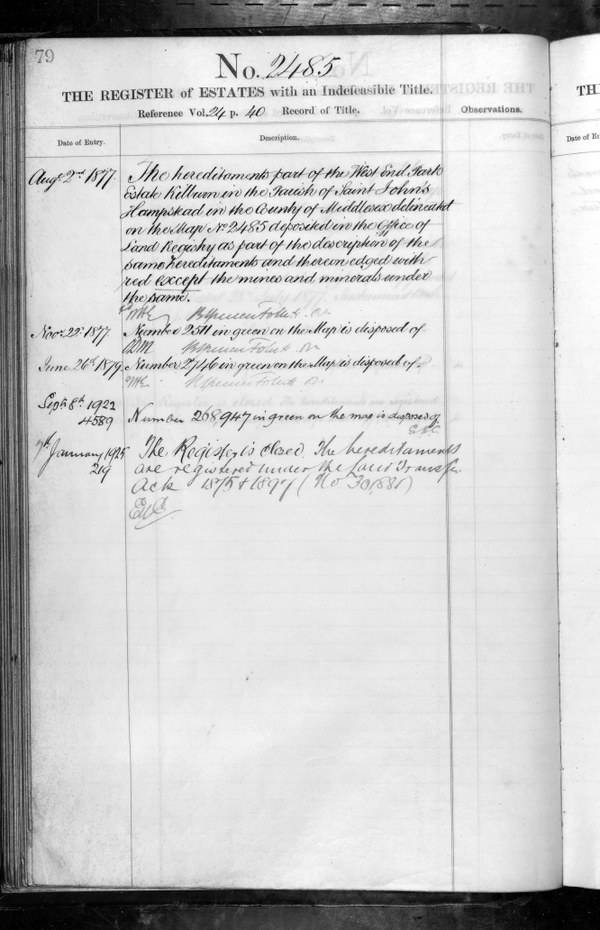 79
No. 2485
THE REGISTER of ESTATES with an Indefeasible Title.
Reference Vol. 24 p. 40 Record of Title.
Observations.
Date of Entry.
Description.
Augt 2nd 1877.
The hereditaments part of the West End Park
Estate Kilburn in the Parish of Saint John's
Hampstead in the County of Middlesex delineated
on the Map No 2485 deposited in the Office of
Land Registry as part of the description of the
same hereditaments and thereon edged with
red except the mines and minerals under
the same.
B Spencer Follett
Novr 22nd 1877
Number 2511 in green on the Map is disposed of
B Spencer Follett
June 26th 1879.
Number 2746 in green on the Map is disposed of.
B Spencer Follett
Septr 8th 1922
4589
Number 268,947 in green on the map is disposed of
7th January 1925
219
The Register is closed. The hereditaments
are registered under the Land Transfer
Acts 1875 & 1897 (No
TH
Date of En